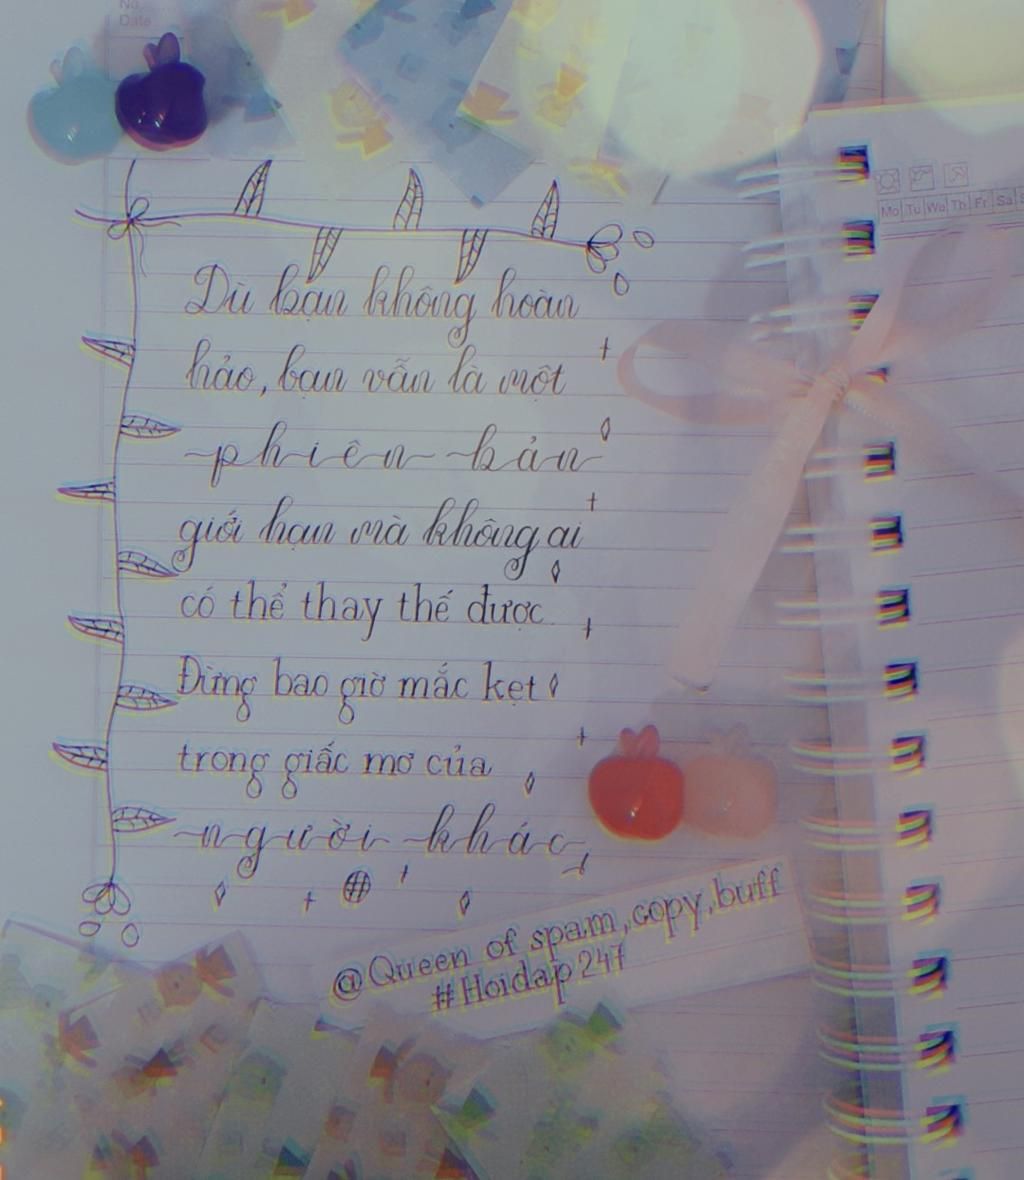 No.
Date
Mo Tu We Th Fr Sa S
Dù bạn không hoàn
hảo, bạn vẫn là một
phiên bản
giới hạn mà không ai
có thể thay thế được.
Đừng bao giờ mắc kẹt
trong giấc mơ của
người khác
@Queen of spam,copy,buff
#Hoidap247